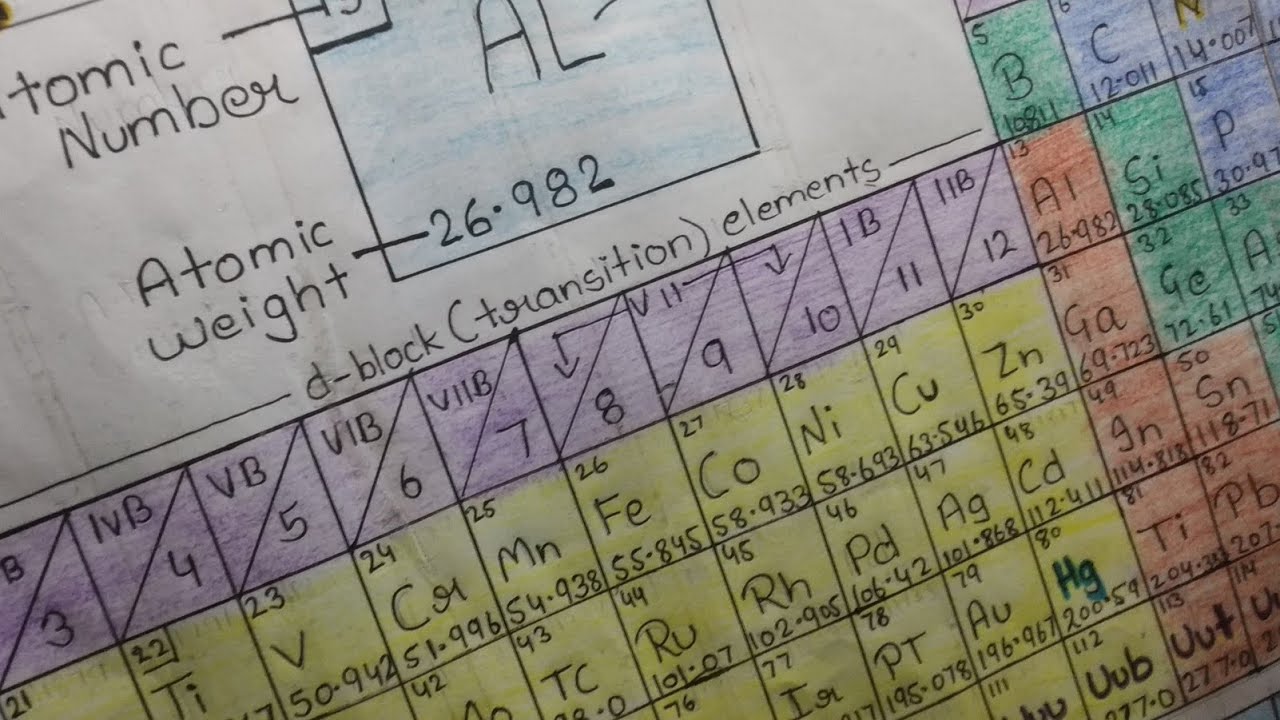 Atomic
Number
AL
26.982
Atomic
weight
d-block (transition) elements
5
B
10811
6
C
12.011
N
14.007
13
Al
26.982
14
Si
28.085
15
P
30.97
B
3
IVB
4
VB
5
VIB
6
VIIB
7
8
VII
9
10
IB
11
IIB
12
21
22
Ti
23
V
50.942
24
Cr
51.996
25
Mn
54.938
26
Fe
55.845
27
Co
58.933
28
Ni
58.693
29
Cu
63.546
30
Zn
65.39
31
Ga
69.723
32
Ge
72.61
33
42
43
TC
44
Ru
101.07
45
Rh
102.905
46
Pd
106.42
47
Ag
101.868
48
Cd
112.411
49
In
114.818
50
Sn
118.71
76
77
Ir
78
PT
195.078
79
Au
196.967
80
Hg
200.59
81
Ti
204.38
82
Pb
207
111
112
Uub
277.0
113
Uut
277.0
114